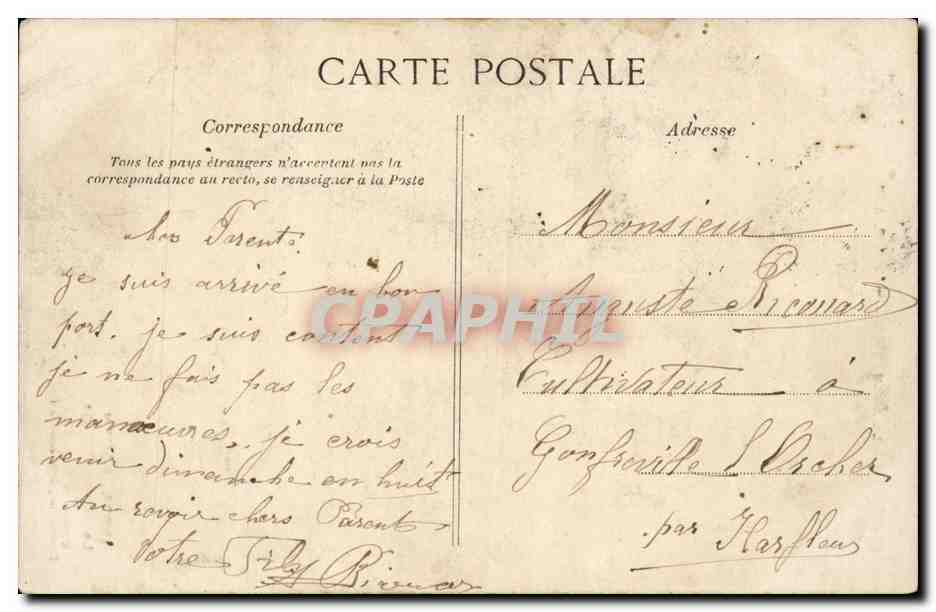 CARTE POSTALE
Correspondance
Tous les pays étrangers n'acceptent pas la
correspondance au recto, se renseigner à la Poste
Mes Parents
je suis arrivé en bon
port. je suis content
je ne fais pas les
manœuvres, je crois
venir dimanche en huit
Au revoir chers Parents
Votre
Adresse
Monsieur
Auguste Ricouard
Cultivateur à
Gonfreville l'Orcher
par Harfleur
CPAPHIL